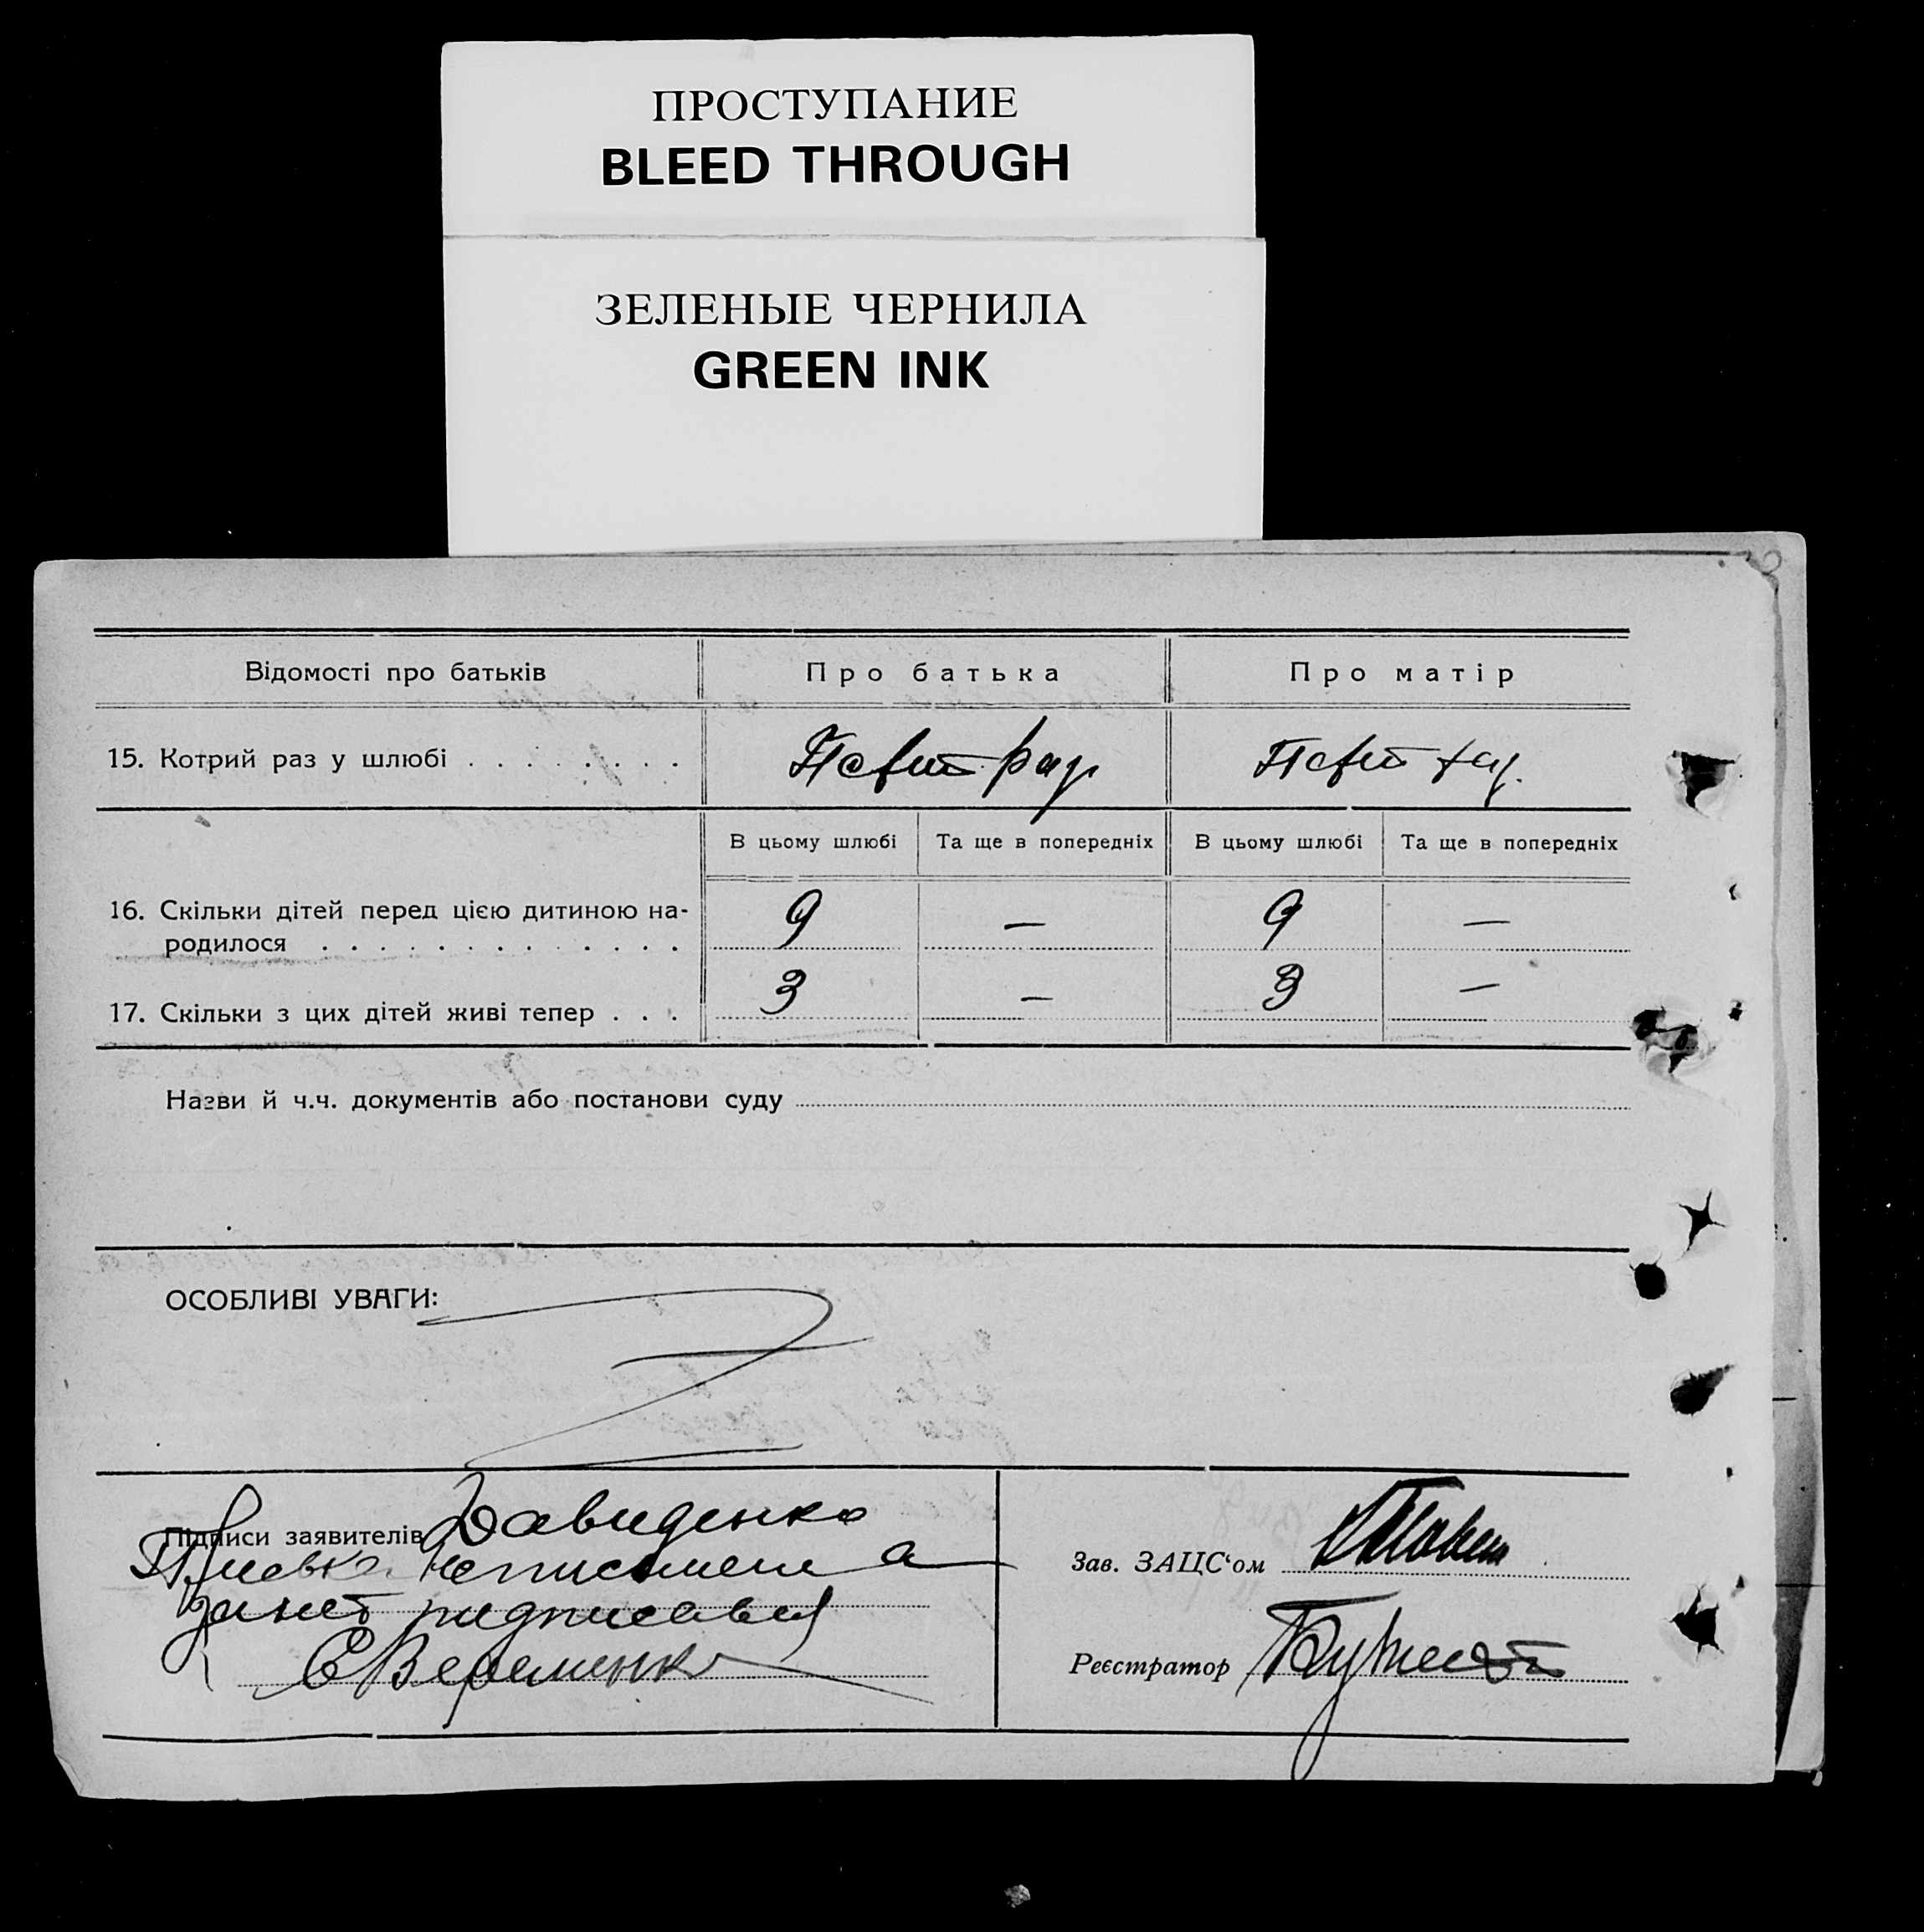 ПРОСТУПАНИЕ
BLEED THROUGH
ЗЕЛЕНЫЕ ЧЕРНИЛА
GREEN INK
Відомості про батьків Про батька Про матір
15. Котрий раз у шлюбі . . . . . . . .
В цьому шлюбі Та ще в попередніх В цьому шлюбі Та ще в попередніх
16. Скільки дітей перед цією дитиною на-
родилося . . . . . . . . . . . . . 9 — 9 —
17. Скільки з цих дітей живі тепер . . . 3 — 3 —
Назви й ч.ч. документів або постанови суду
ОСОБЛИВІ УВАГИ:
Підписи заявителів Давиденко
неписьмена
за неї підписався
Є Веременко
Зав. ЗАЦС'ом
Реєстратор